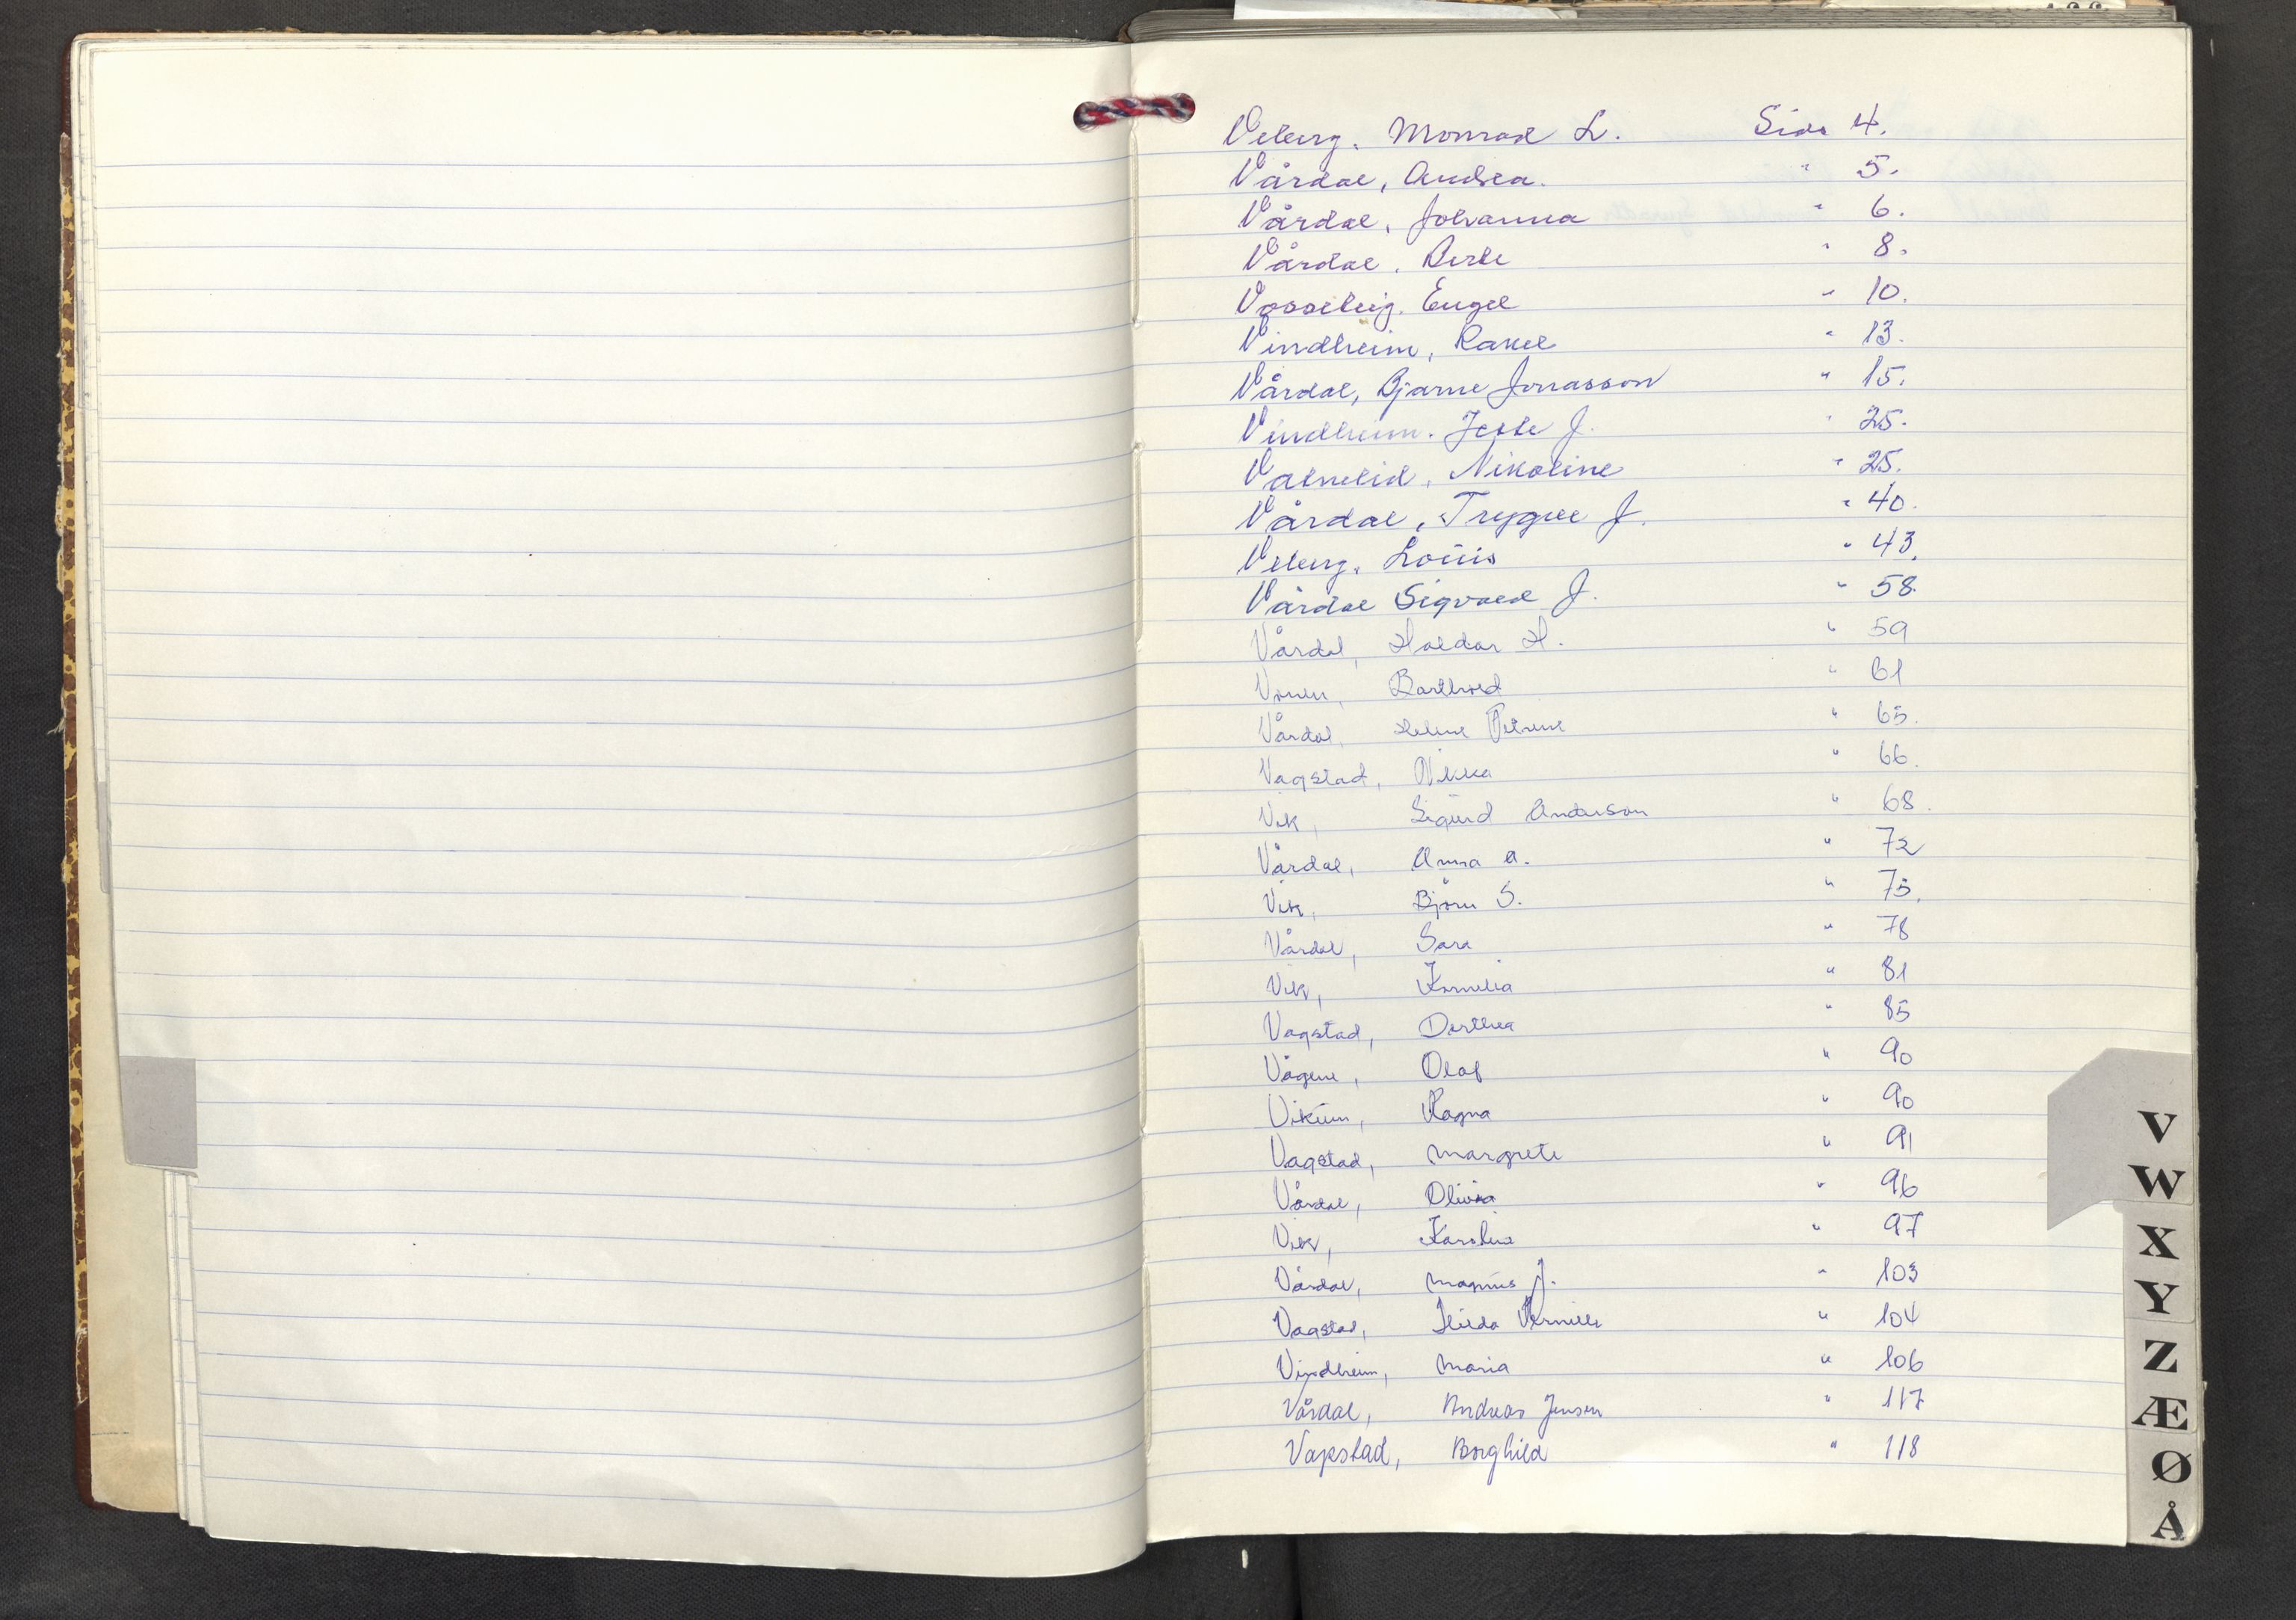 Veberg, Monrad L. Side 4.
Vårdal, Andrea. " 5.
Vårdal, Johanna " 6.
Vårdal, Berte " 8.
Engel " 10.
Vindheim, Rakel " 13.
Vårdal, Bjarne Jonasson " 15.
Vindheim. Jette J. " 25.
Valnelid, Nikoline " 25.
Vårdal, Trygve J. " 40.
Veberg, Louis " 43.
Vårdal Sigvald J. " 58.
Vårdal, Haldor H. " 59
Vonen, Barthold " 61
Vårdal, Helene Petrine " 65.
Vagstad, Rikka " 66.
Vik, Sigurd Anderson " 68.
Vårdal, Anna A. " 72
Vik, Bjørn S. " 75.
Vårdal, Sara " 78
Vik, Kornelia " 81
Vagstad, Dorthea " 85
Vågene, Olaf " 90
Vikum, Ragna " 90
Vagstad, Margrete " 91
Vårdal, Olivia " 96
Vik, Karoline " 97
Vårdal, Magnus J. " 103
Vagstad, Hilda Pernille " 104
Vindheim, Maria " 106
Vårdal, Andreas Jensen " 117
Vagstad, Borghild " 118
V
W
X
Y
Z
Æ
Ø
Å